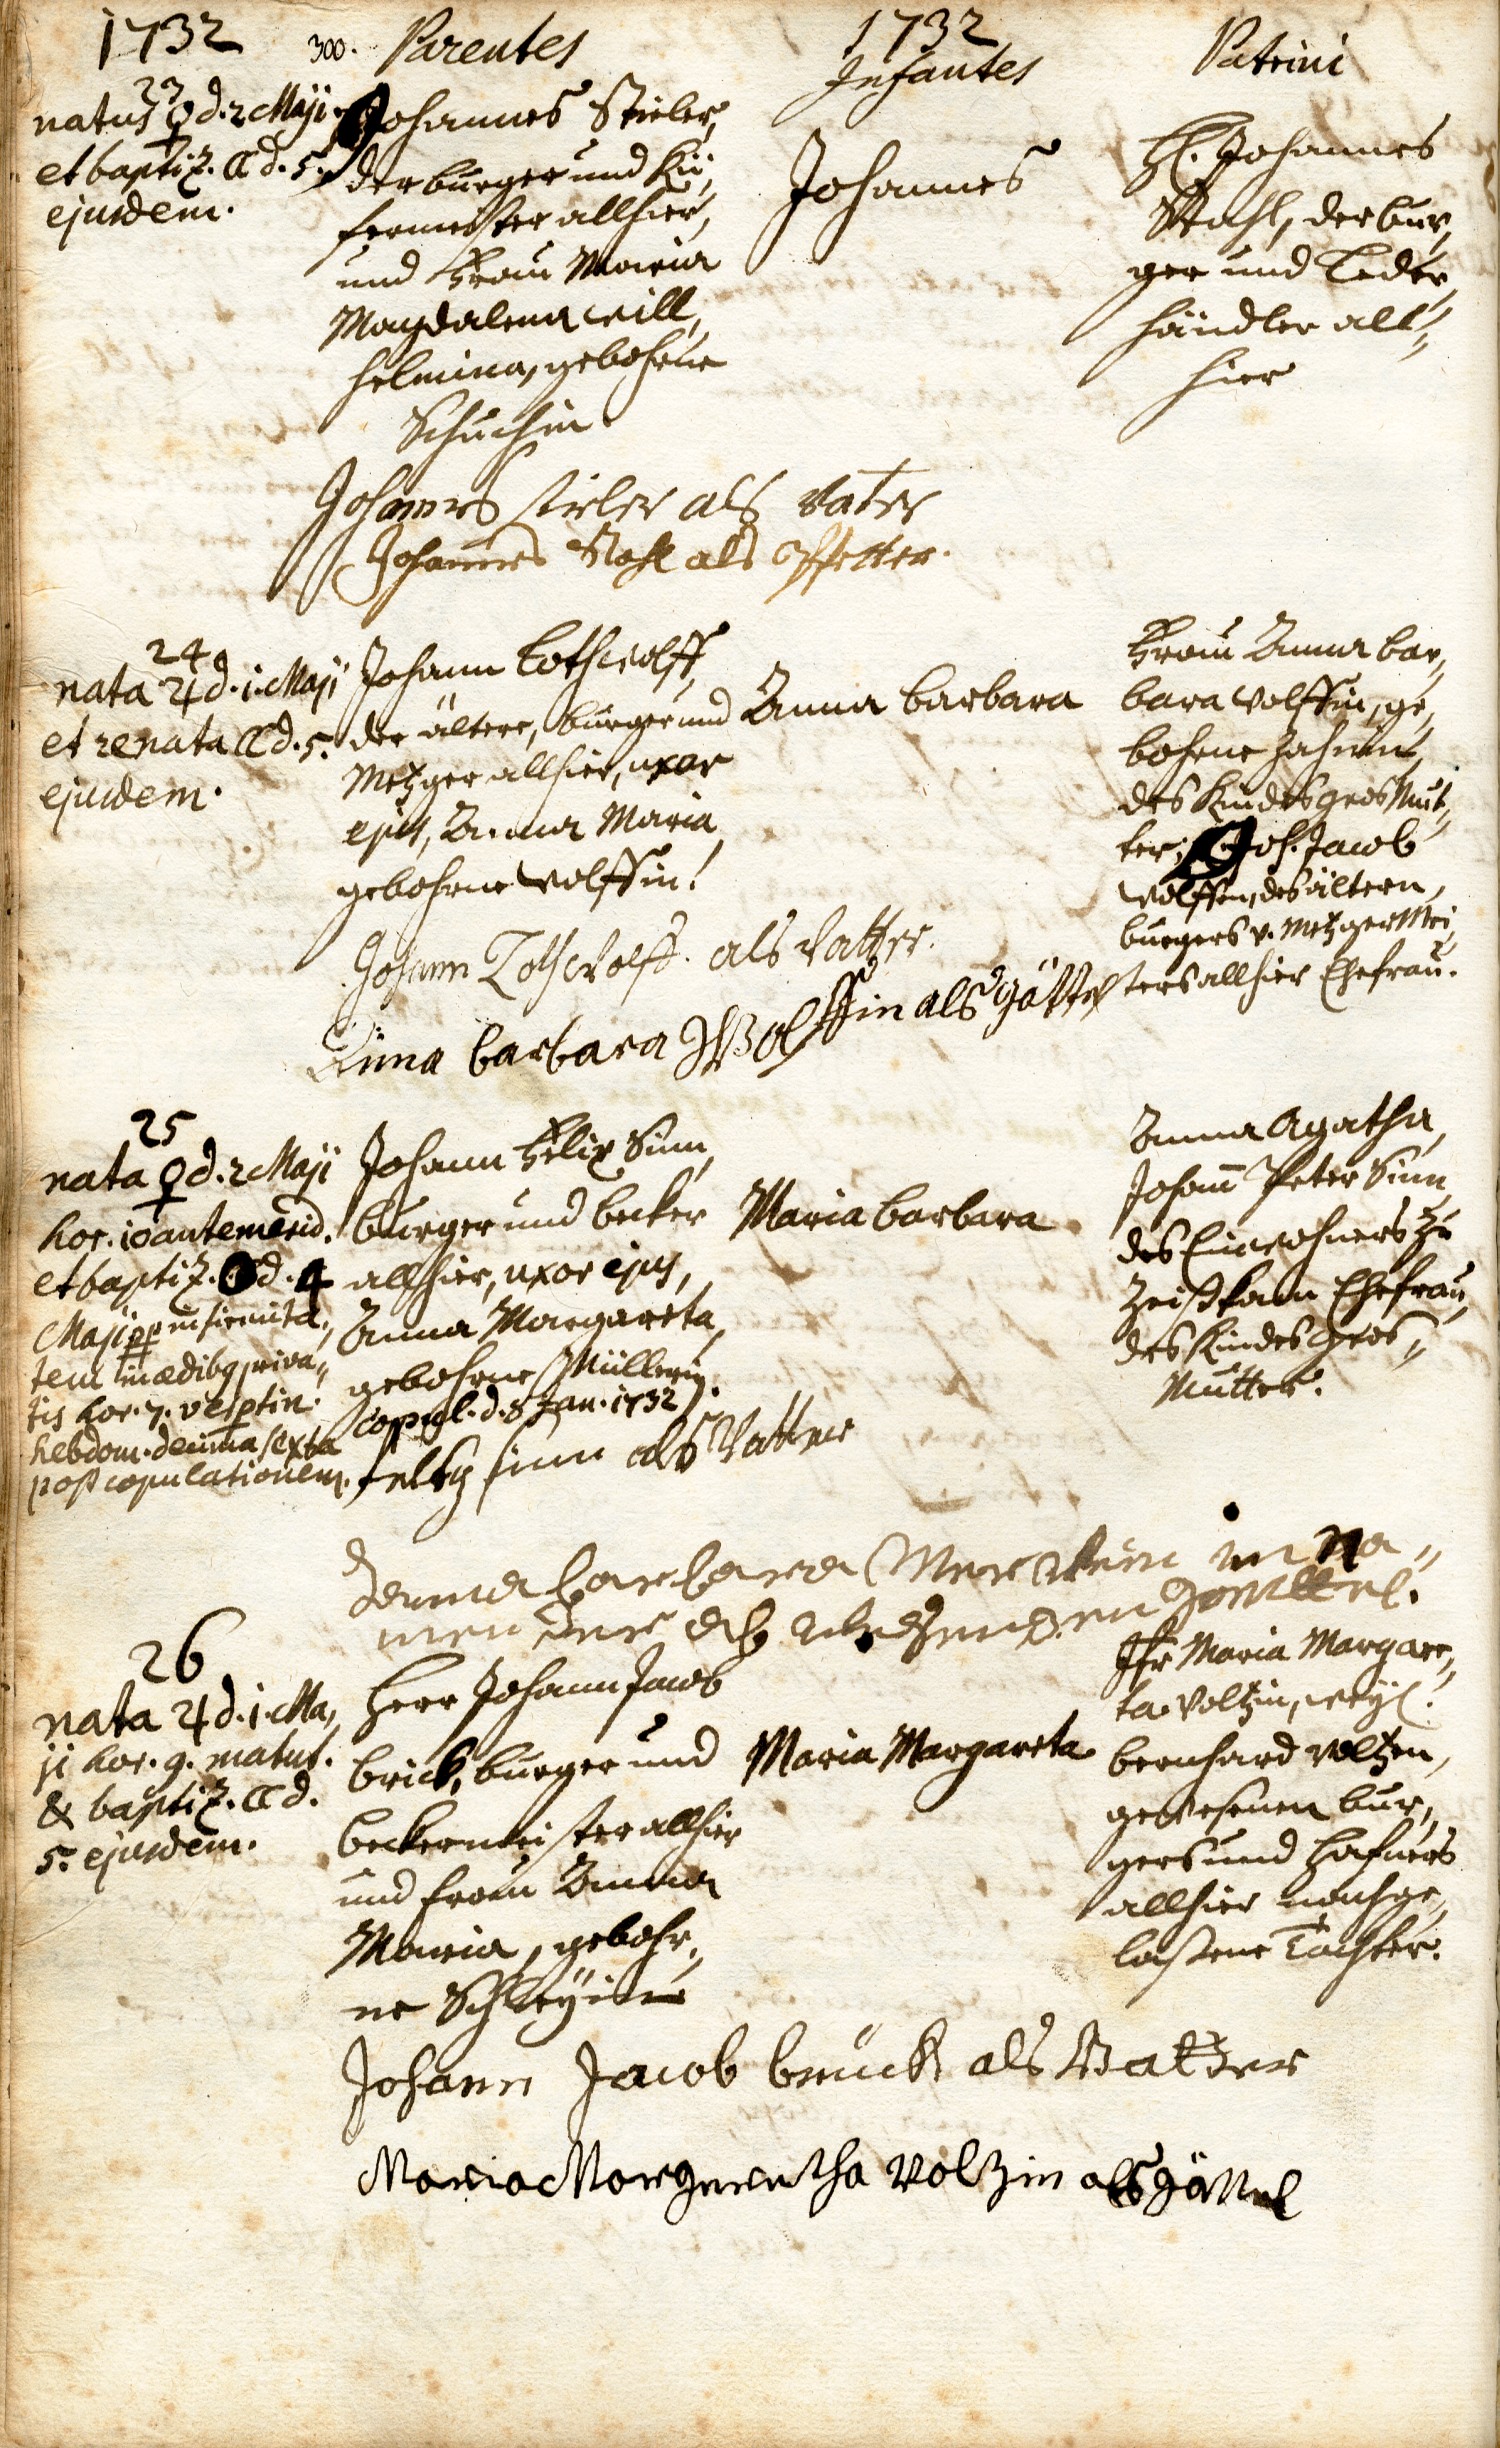 1732
300.
Parentes
1732
Infantes
Patrini
23
natus ♀ d. 2 Maji
et baptiz. ☾ d. 5.
ejusdem.
Johannes Stieler,
der burger und Kü,,
fermeister allhier,
und Frau Maria
Magdalena Will,,
helmina, gebohrne
Schuchin
Johannes
H. Johannes
Stahl, der bur,,
ger und Leder,,
händler all,,
hier
Johannes stieler als Vatter
Johannes Stahl als Pfetter.
24
nata ♃ d. 1. Maji
et renata ☾ d. 5.
ejusdem.
Johann Loth Wolff,
der ältere, burger und
Metzger allhier, uxor
ejus, Anna Maria,
gebohrne Wolffin.
Anna Barbara
Frau Anna Bar,,
bara Wolffin, ge,,
bohrne Zahnin,
des Kindes gros Mut,,
ter, Joh. Jacob
Wolffen, des ältern,
burgers v. Metzger Mei,,
sters allhier Ehefrau.
Johann Loth Wolff. als Vatter.
Anna barbara Wolffin als göttel
25
nata ♀ d. 2 Maji
hor. 10 antemerid.
et baptiz. d. 4
Maji pp infirmita,,
tem in ædibq priva,,
tis hor. 7. vesptin.
hebdom. decima sexta
post copulationem.
Johann Felix Sinn,
burger und becker
allhier, uxor ejus,
Anna Margareta,
gebohrne Müllerin.
Copul. d. 8 Jan. 1732
Maria Barbara
Anna Agatha,
Johann Peter Sinn,
des Einwohners zu
Zeißkam Ehefrau,
des Kindes Gros,,
Mutter.
feltz sinn als Vatter
anna barbara in na,,
men der
26
nata ♃ d. 1. Ma,,
ji hor. 9. matut.
& baptiz. ☾ d.
5. ejusdem.
Herr Johann Jacob
Brick, burger und
beckermeister allhier
und Frau Anna
Maria, gebohr,,
ne Schleyin
Maria Margareta
Jfr Maria Margare,,
ta Voltzin, weyl.
bernhard Voltzen,
gewesenen bur,,
gers und Hafners
allhier nachge,,
laßene Tochter.
Johann Jacob brück als Vatter
Maria Margaretha Voltzin als göttel